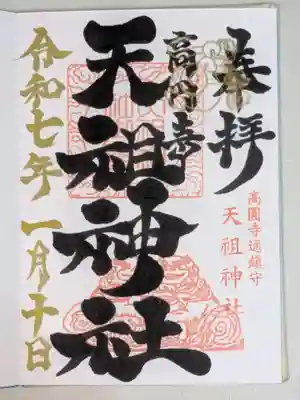 奉拝
高圓寺
高圓寺逅鎮守
天祖神社
天祖神社
令和七年一月十日